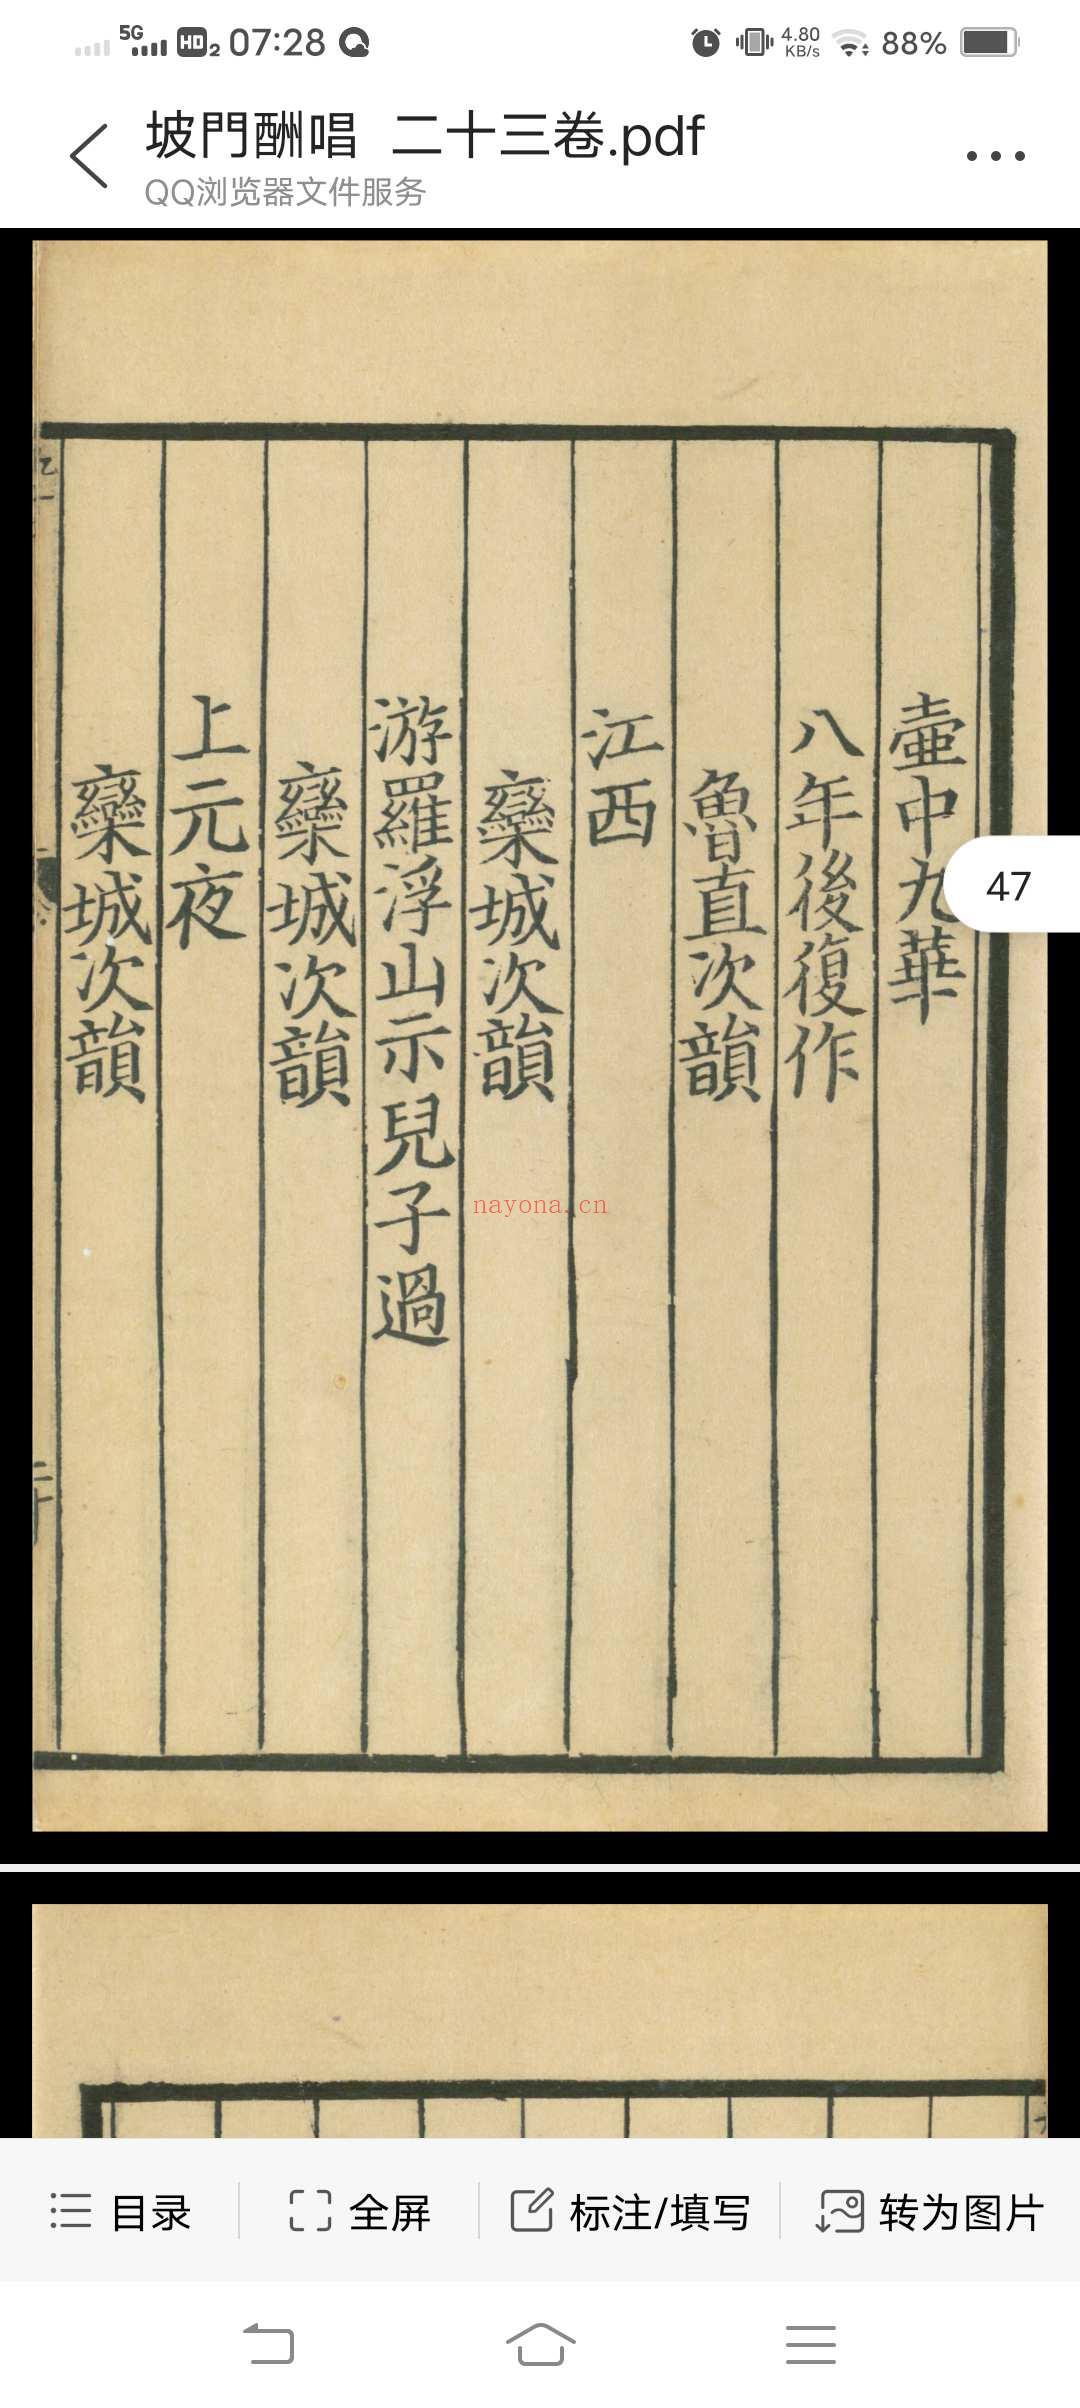 5G HD 2 07:28 4.80 KB/s 88%
坡門酬唱 二十三卷.pdf
QQ浏览器文件服务
壺中九華
八年後復作
魯直次韻
江西
欒城次韻
游羅浮山示兒子過
欒城次韻
上元夜
欒城次韻
47
nayona.cn
目录
全屏
标注/填写
转为图片